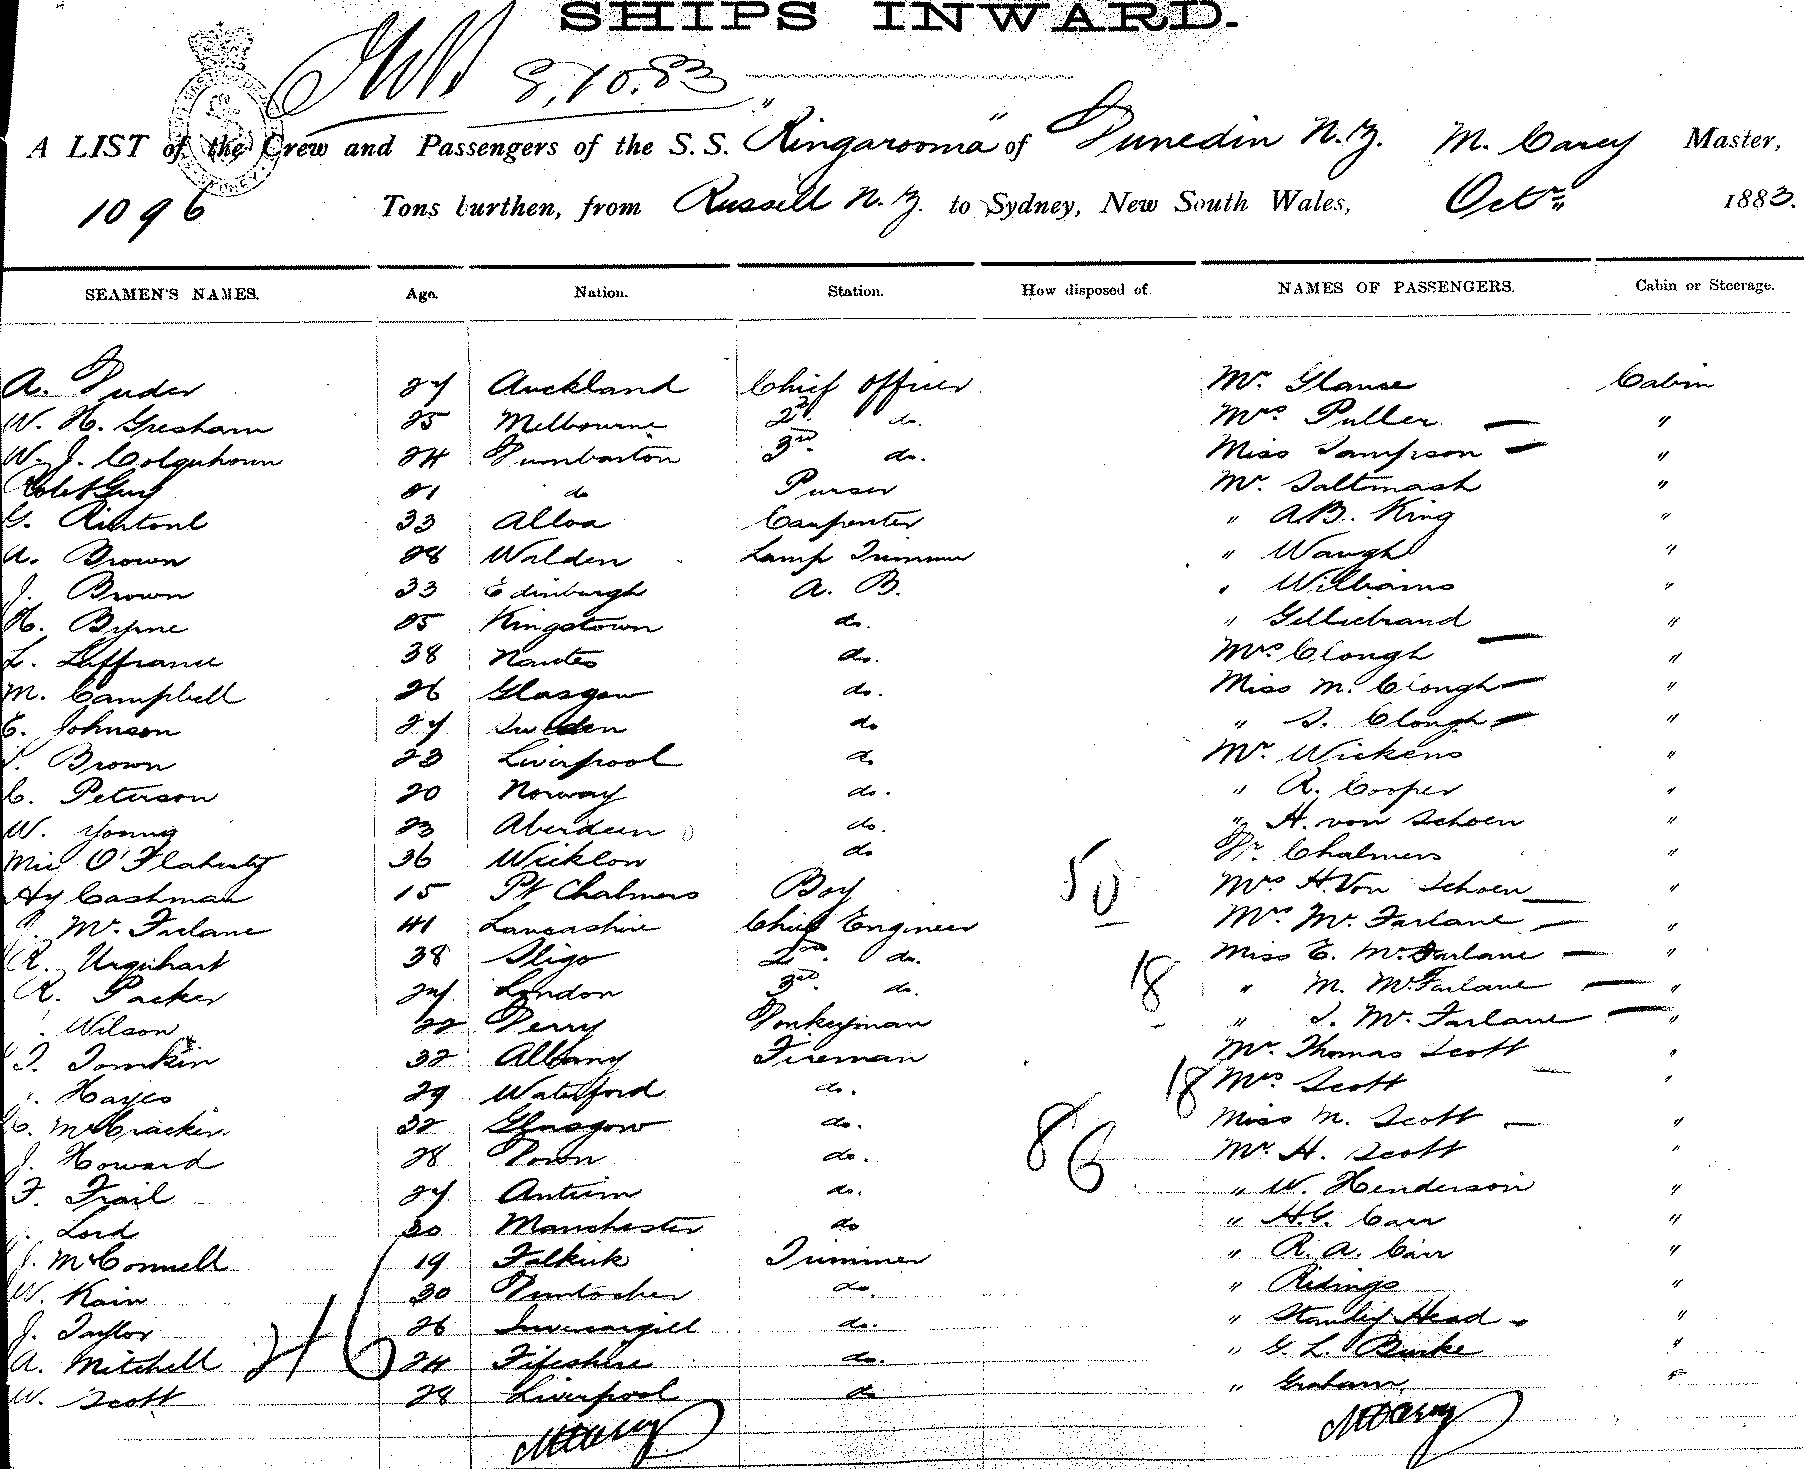 SHIPS INWARD.
8.10.83
A LIST of the Crew and Passengers of the S.S. "Ringarooma" of Dunedin N.Z. M. Carey Master,
1096 Tons burthen, from Russell N.Z. to Sydney, New South Wales, Octr. 1883.
SEAMEN'S NAMES. Age. Nation. Station. How disposed of NAMES OF PASSENGERS. Cabin or Steerage.
A. Duder 27 Auckland Chief Officer Mr. Glause Cabin
W. H. Gresham 25 Melbourne 2nd do. Mrs Puller — "
W. J. Colquhoun 24 Dumbarton 3rd do. Miss Sampson — "
Robt Guy 21 do Purser Mr. Saltmash "
G. Rintoul 33 Alloa Carpenter " A.B. King "
A. Brown 28 Walden Lamp Trimmer " Waugh "
J. Brown 33 Edinburgh A. B. " Williams "
H. Byrne 25 Kingstown do. " Gilliebrand "
L. Laffranie 38 Nantes do. Mrs Clough — "
M. Campbell 26 Glasgow do. Miss M. Clough — "
E. Johnson 27 Sweden do " S. Clough — "
Brown 23 Liverpool do Mr. Wickens "
C. Peterson 20 Norway do. " R. Cooper "
W. Young 23 Aberdeen do. " H. von Schoen "
Mic O'Flaherty 36 Wicklow do Dr. Chalmers "
Hy Cashman 15 Pt Chalmers Boy 50 Mrs H Von Schoen — "
Mc. Farlane 41 Lancashire Chief Engineer Mrs Mc. Farlane — "
R. Urquhart 38 Sligo 2nd do. Miss E. McFarlane — "
R. Packer 27 London 3rd do. 18 " M. McFarlane — "
Wilson 22 Derry Donkeyman " J. Mc. Farlane — "
T. Tomkin 32 Albany Fireman Mr. Thomas Scott "
Hayes 29 Waterford do. 18 Mrs Scott — "
C. McCracken 32 Glasgow do. Miss M. Scott — "
J. Howard 28 Down do. 86 Mr. H. Scott "
F. Frail 27 Antrim do. " W. Henderson "
Lord 30 Manchester do " H.G. Carr "
J. McConnell 19 Falkirk Trimmer " R. A. Carr "
W. Kain 30 Duntocher do. " Ridings "
J. Taylor 26 Invercargill do. " Stanley Head "
A. Mitchell 24 Fifeshire do. " G. L. Burke "
W. Scott 28 Liverpool do " Graham "
M Carey M Carey